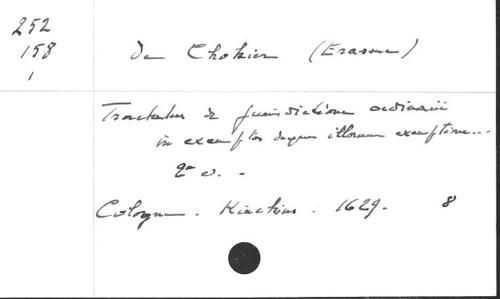 252
158
1
De Chokier (Erasme)
Tractatus de jurisdictione ordinarii
in exemptos deque illorum exemptione...
2a v. -
Cologne. Kinckius. 1629. 8